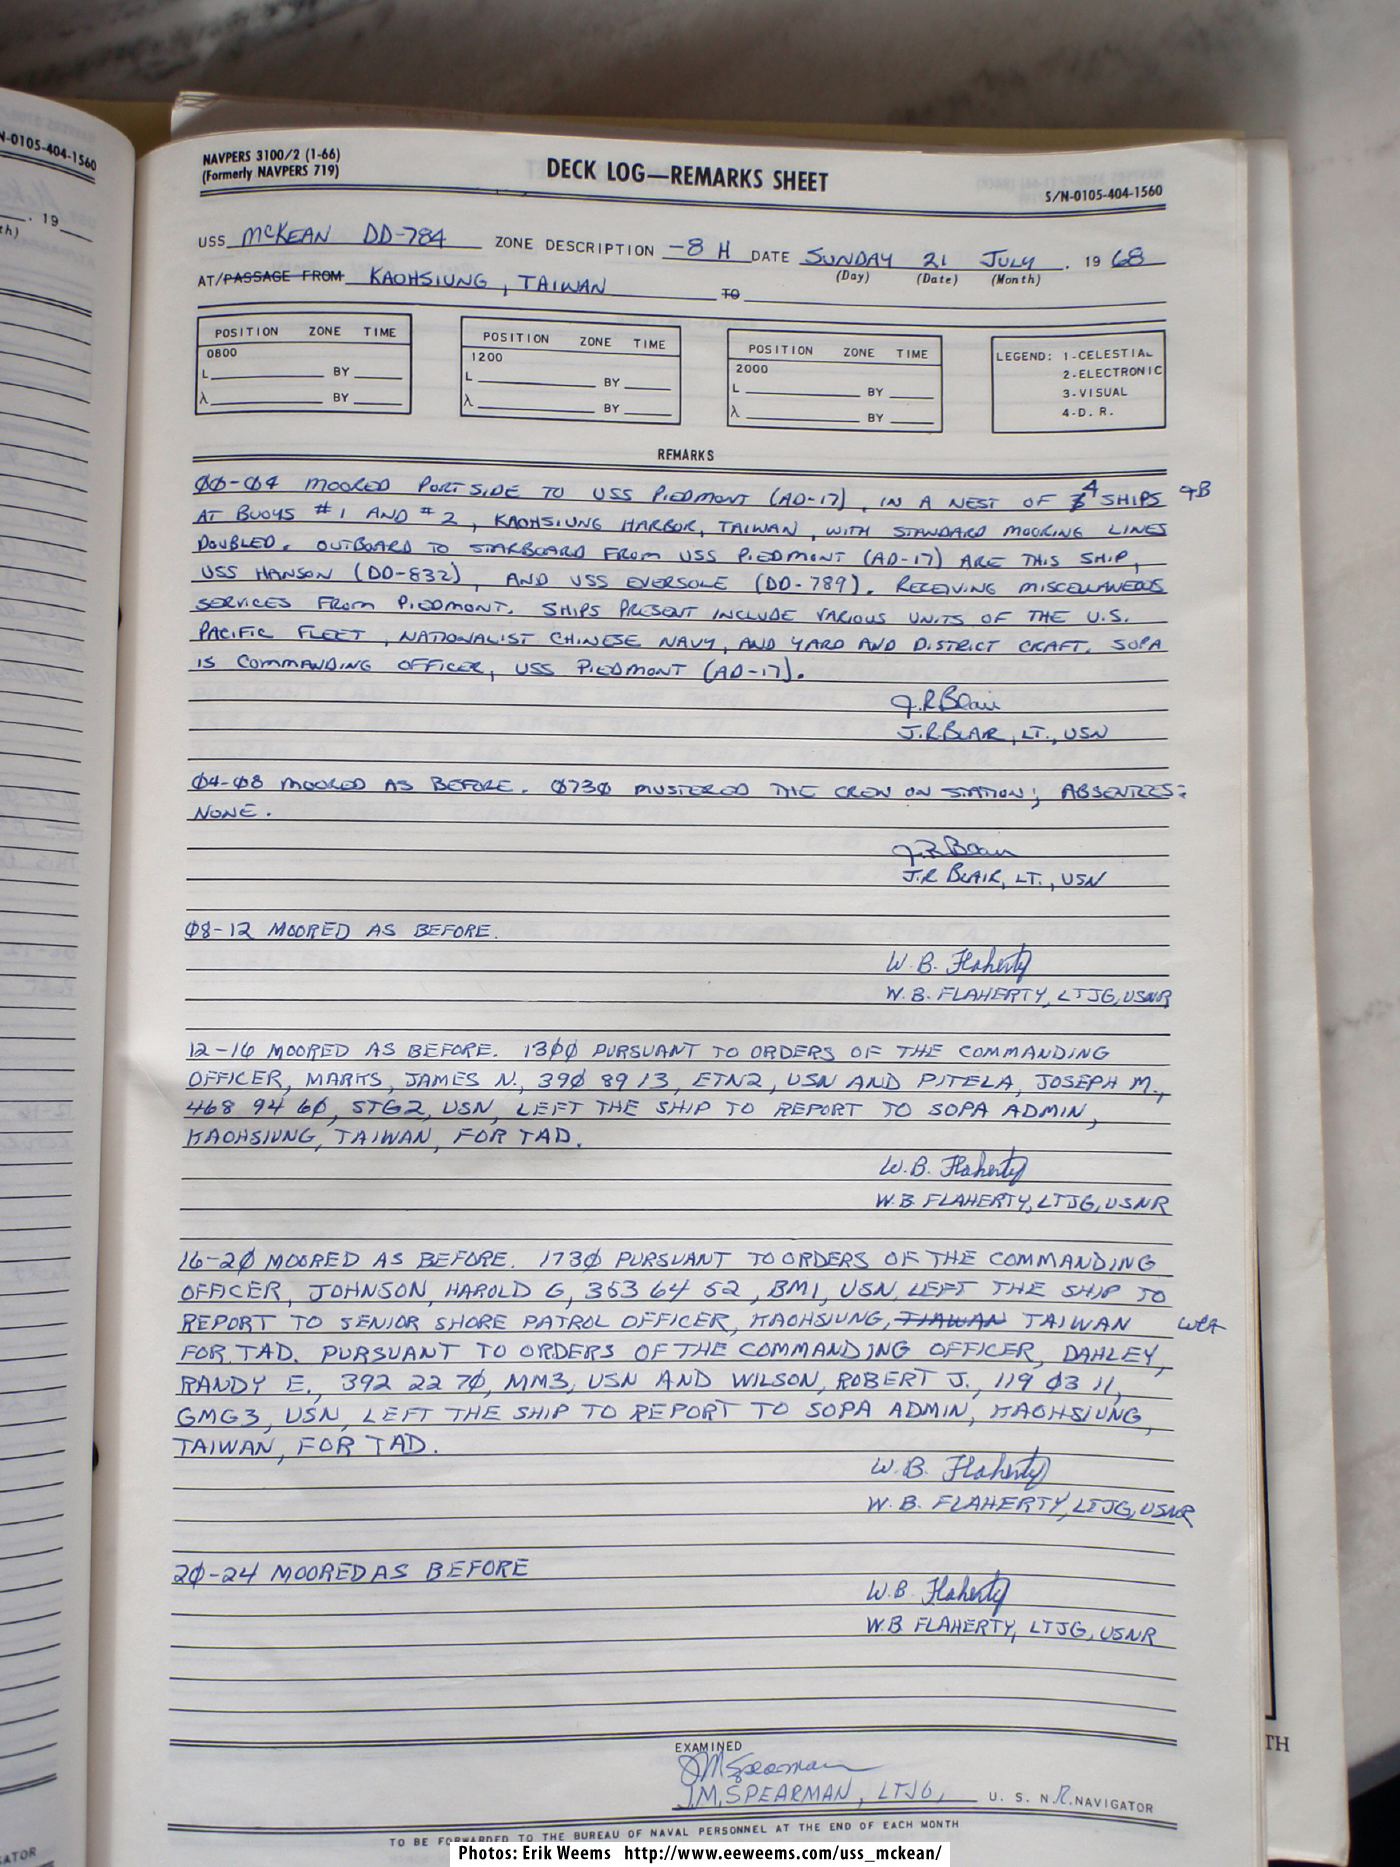 N-0105-404-1560
19
th)
NAVPERS 3100/2 (1-66)
(Formerly NAVPERS 719)
DECK LOG—REMARKS SHEET
S/N-0105-404-1560
USS McKEAN DD-784 ZONE DESCRIPTION -8 H DATE SUNDAY 21 JULY, 19 68
(Day) (Date) (Month)
AT/PASSAGE FROM KAOHSIUNG, TAIWAN TO
POSITION ZONE TIME
0800
L BY
λ BY
POSITION ZONE TIME
1200
L BY
λ BY
POSITION ZONE TIME
2000
L BY
λ BY
LEGEND: 1-CELESTIAL
2-ELECTRONIC
3-VISUAL
4-D. R.
REMARKS
00-04 MOORED PORT SIDE TO USS PIEDMONT (AD-17), IN A NEST OF 4 SHIPS
AT BUOYS #1 AND #2, KAOHSIUNG HARBOR, TAIWAN, WITH STANDARD MOORING LINES
DOUBLED. OUTBOARD TO STARBOARD FROM USS PIEDMONT (AD-17) ARE THIS SHIP,
USS HANSON (DD-832), AND USS EVERSOLE (DD-789). RECEIVING MISCELLANEOUS
SERVICES FROM PIEDMONT. SHIPS PRESENT INCLUDE VARIOUS UNITS OF THE U.S.
PACIFIC FLEET, NATIONALIST CHINESE NAVY, AND YARD AND DISTRICT CRAFT. SOPA
IS COMMANDING OFFICER, USS PIEDMONT (AD-17).
J.R. Blair
J.R. BLAIR, LT., USN
04-08 MOORED AS BEFORE. 0730 MUSTERED THE CREW ON STATION; ABSENTEES:
NONE.
J.R. Blair
J.R BLAIR, LT., USN
08-12 MOORED AS BEFORE.
W. B. Flaherty
W. B. FLAHERTY, LTJG, USNR
12-16 MOORED AS BEFORE. 1300 PURSUANT TO ORDERS OF THE COMMANDING
OFFICER, MARKS, JAMES N., 390 89 13, ETN2, USN AND PITELA, JOSEPH M.,
468 94 60, STG2, USN, LEFT THE SHIP TO REPORT TO SOPA ADMIN,
KAOHSIUNG, TAIWAN, FOR TAD.
W. B. Flaherty
W. B. FLAHERTY, LTJG, USNR
16-20 MOORED AS BEFORE. 1730 PURSUANT TO ORDERS OF THE COMMANDING
OFFICER, JOHNSON, HAROLD G, 353 64 52, BM1, USN, LEFT THE SHIP TO
REPORT TO SENIOR SHORE PATROL OFFICER, KAOHSIUNG, TIAWAN TAIWAN
FOR TAD. PURSUANT TO ORDERS OF THE COMMANDING OFFICER, DAHLEY,
RANDY E., 392 22 70, MM3, USN AND WILSON, ROBERT J., 119 03 11,
GMG3, USN, LEFT THE SHIP TO REPORT TO SOPA ADMIN, KAOHSIUNG,
TAIWAN, FOR TAD.
W. B. Flaherty
W. B. FLAHERTY, LTJG, USNR
20-24 MOORED AS BEFORE
W. B. Flaherty
W. B FLAHERTY, LTJG, USNR
EXAMINED
J M Spearman
J.M. SPEARMAN, LTJG, U. S. N.R. NAVIGATOR
TO BE FORWARDED TO THE BUREAU OF NAVAL PERSONNEL AT THE END OF EACH MONTH
TH
Photos: Erik Weems http://www.eeweems.com/uss_mckean/